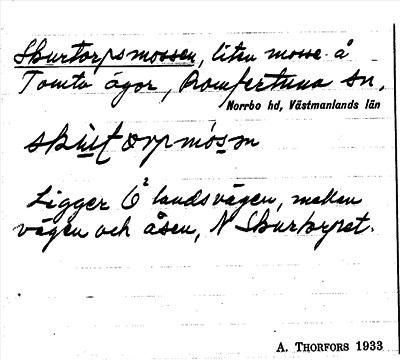 Skurtorpsmossen, liten mosse å
Tomta ägor, Romfertuna sn,
Norrbo hd, Västmanlands län
skùt orpmòsn
Ligger Ö landsvägen, mellan
vägen och åsen, N Skurtorpet.
A. THORFORS 1933